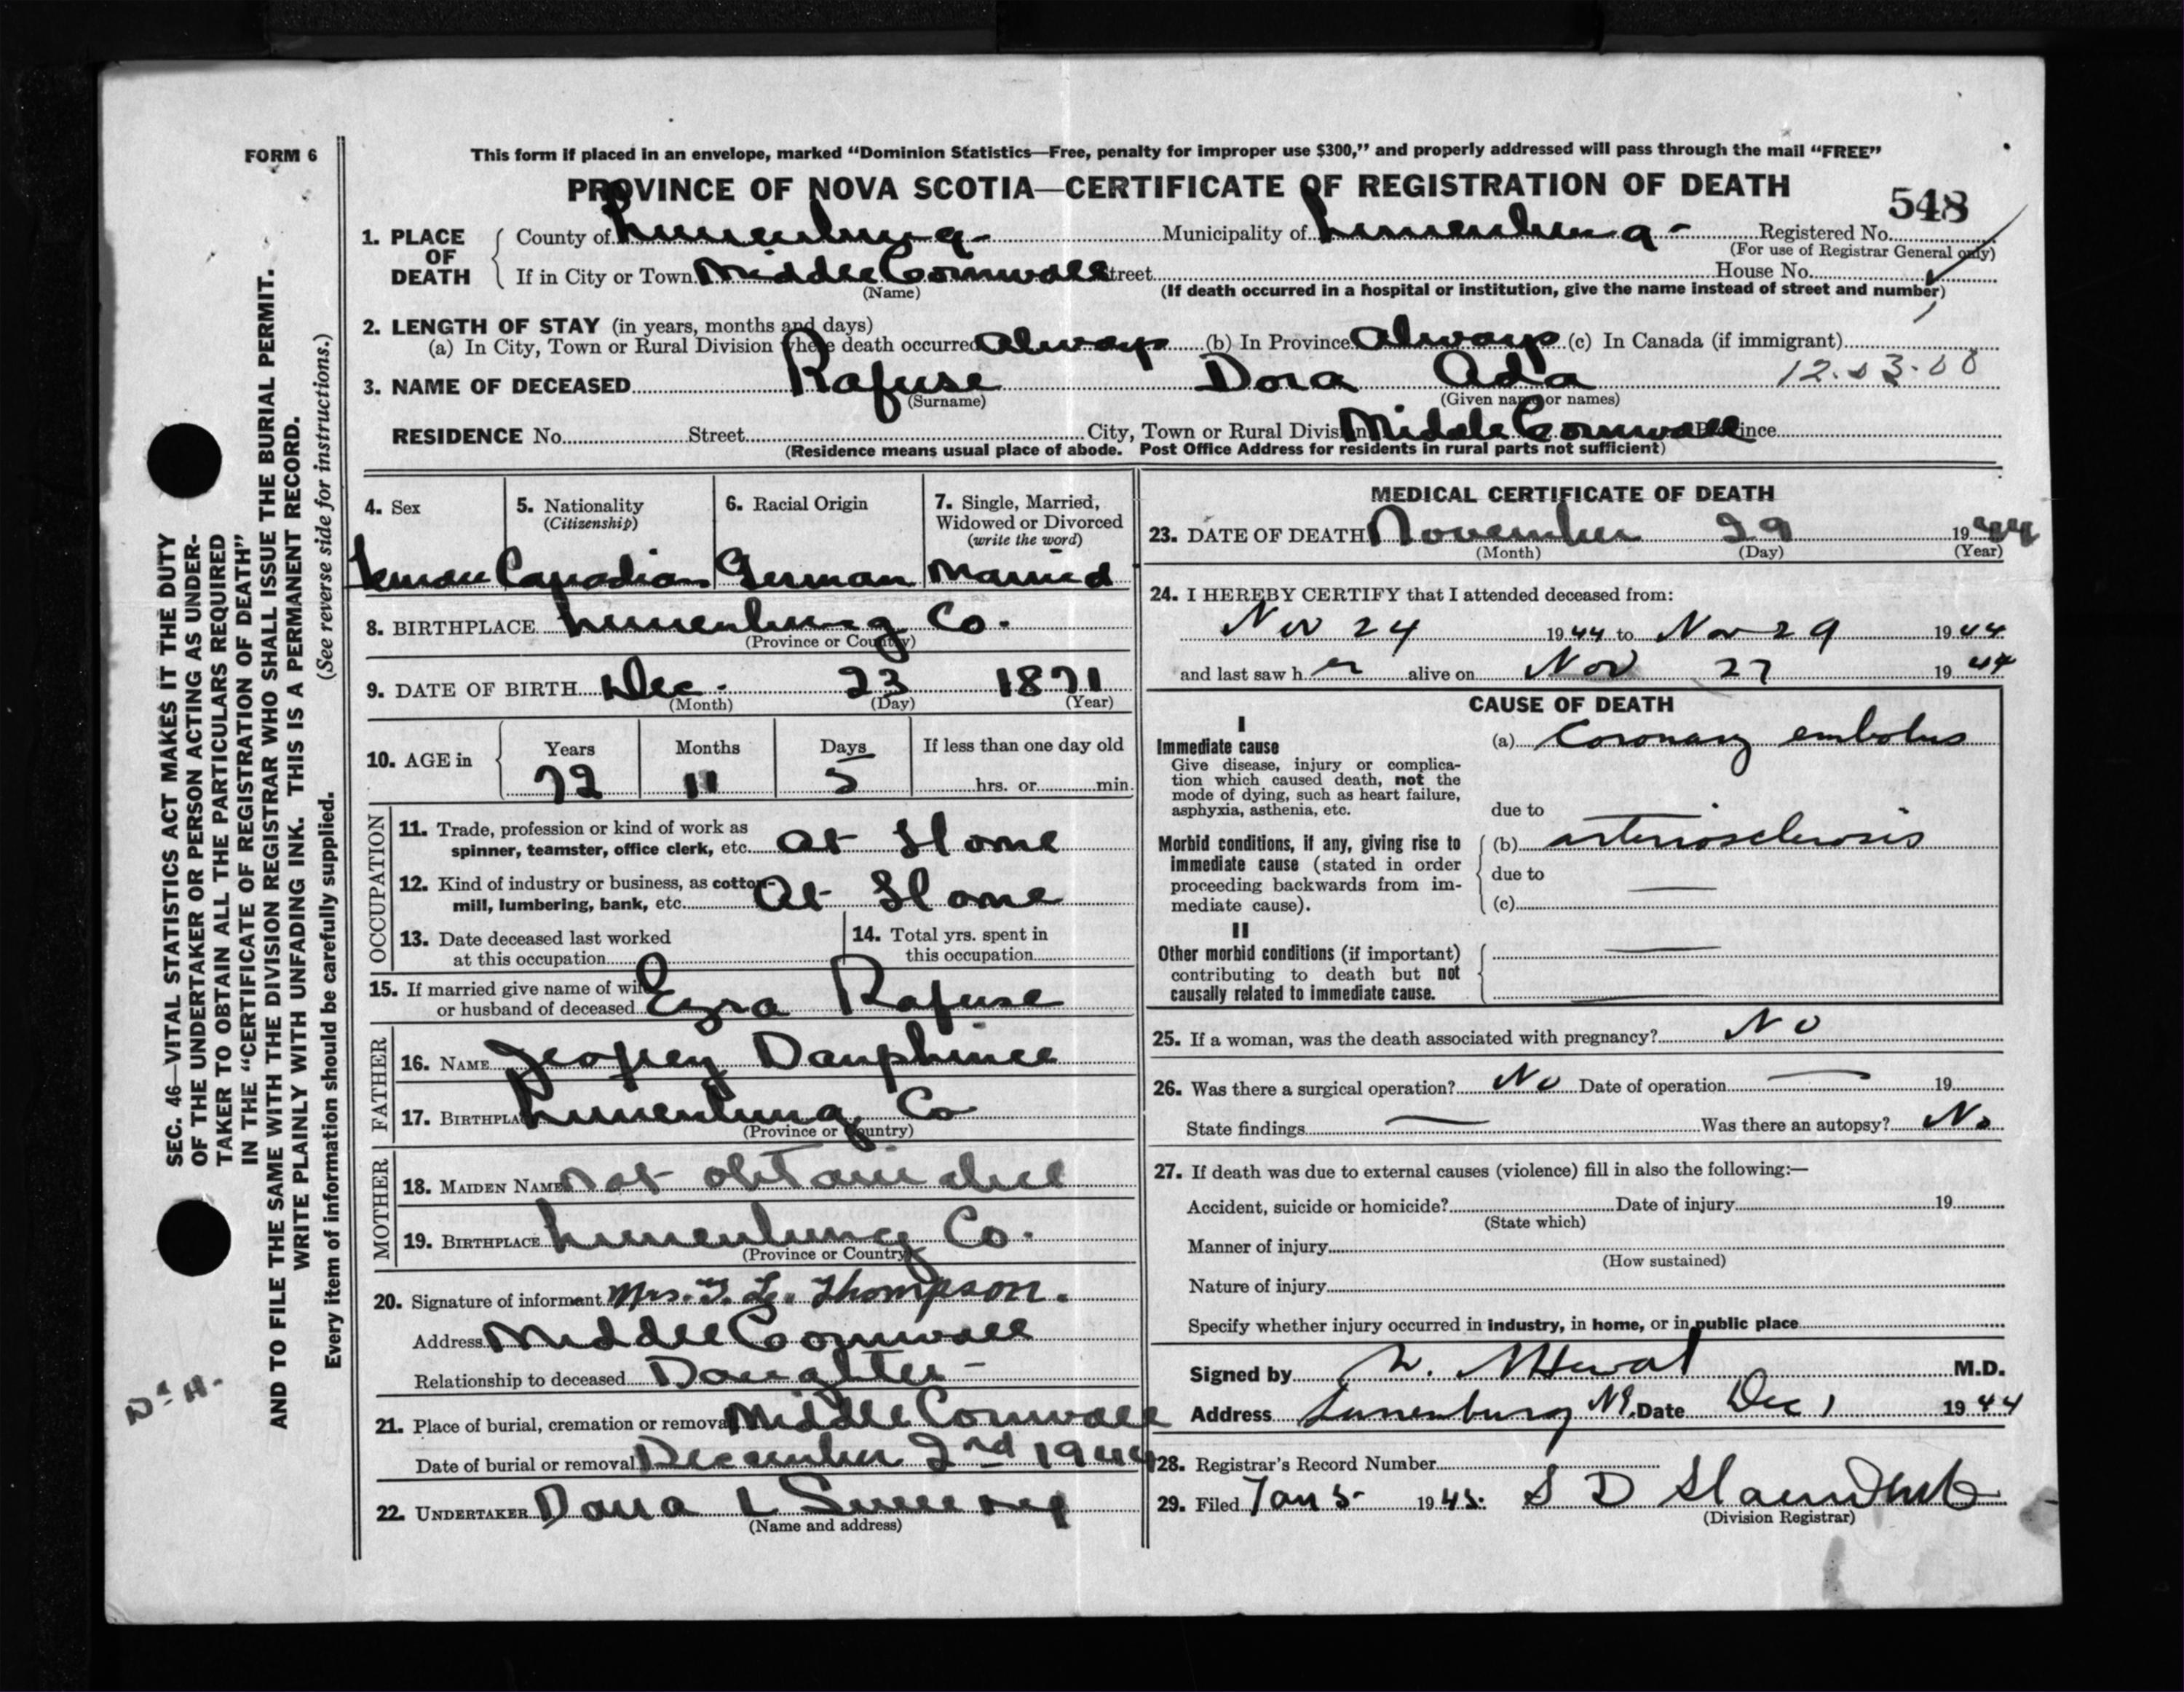 FORM 6
This form if placed in an envelope, marked “Dominion Statistics—Free, penalty for improper use $300,” and properly addressed will pass through the mail “FREE”
PROVINCE OF NOVA SCOTIA—CERTIFICATE OF REGISTRATION OF DEATH
548
1. PLACE OF DEATH
County of Lunenburg - Municipality of Lunenburg - Registered No.
(For use of Registrar General only)
If in City or Town Middle Cornwall Street House No.
(Name) (If death occurred in a hospital or institution, give the name instead of street and number)
2. LENGTH OF STAY (in years, months and days)
(a) In City, Town or Rural Division where death occurred Always (b) In Province Always (c) In Canada (if immigrant)
3. NAME OF DECEASED Rafuse Dora Ada
(Surname) (Given name or names)
RESIDENCE No. Street City, Town or Rural Division Middle Cornwall Province
(Residence means usual place of abode. Post Office Address for residents in rural parts not sufficient)
4. Sex 5. Nationality (Citizenship) 6. Racial Origin 7. Single, Married, Widowed or Divorced (write the word)
Female Canadian German Married
8. BIRTHPLACE Lunenburg Co.
(Province or Country)
9. DATE OF BIRTH Dec. 23 1871
(Month) (Day) (Year)
10. AGE in Years Months Days If less than one day old
72 11 5 hrs. or min.
OCCUPATION
11. Trade, profession or kind of work as
spinner, teamster, office clerk, etc. at Home
12. Kind of industry or business, as cotton-
mill, lumbering, bank, etc. At Home
13. Date deceased last worked
at this occupation
14. Total yrs. spent in
this occupation
15. If married give name of wife
or husband of deceased Ezra Rafuse
FATHER
16. NAME Jeofrey Dauphinee
17. BIRTHPLACE Lunenburg Co
(Province or Country)
MOTHER
18. MAIDEN NAME not obtainable
19. BIRTHPLACE Lunenburg Co.
(Province or Country)
20. Signature of informant Mrs. Thompson.
Address Middle Cornwall
Relationship to deceased Daughter -
21. Place of burial, cremation or removal Middle Cornwall
Date of burial or removal December 2nd 1944
22. UNDERTAKER Dana L Sweeny
(Name and address)
MEDICAL CERTIFICATE OF DEATH
23. DATE OF DEATH November 29 1944
(Month) (Day) (Year)
24. I HEREBY CERTIFY that I attended deceased from:
Nov 24 1944 to Nov 29 1944
and last saw her alive on Nov 27 1944
CAUSE OF DEATH
I
Immediate cause
Give disease, injury or complica-
tion which caused death, not the
mode of dying, such as heart failure,
asphyxia, asthenia, etc.
(a) Coronary embolus
due to
Morbid conditions, if any, giving rise to
immediate cause (stated in order
proceeding backwards from im-
mediate cause).
(b) arteriosclerosis
due to
(c)
II
Other morbid conditions (if important)
contributing to death but not
causally related to immediate cause.
25. If a woman, was the death associated with pregnancy? No
26. Was there a surgical operation? No Date of operation — 19
State findings — Was there an autopsy? No
27. If death was due to external causes (violence) fill in also the following:—
Accident, suicide or homicide? Date of injury 19
(State which)
Manner of injury
(How sustained)
Nature of injury
Specify whether injury occurred in industry, in home, or in public place
Signed by M.D.
Address Lunenburg NS. Date Dec 1 1944
28. Registrar's Record Number
29. Filed Jan 5- 1945. S D
(Division Registrar)
SEC. 46—VITAL STATISTICS ACT MAKES IT THE DUTY
OF THE UNDERTAKER OR PERSON ACTING AS UNDER-
TAKER TO OBTAIN ALL THE PARTICULARS REQUIRED
IN THE “CERTIFICATE OF REGISTRATION OF DEATH”
AND TO FILE THE SAME WITH THE DIVISION REGISTRAR WHO SHALL ISSUE THE BURIAL PERMIT.
WRITE PLAINLY WITH UNFADING INK. THIS IS A PERMANENT RECORD.
Every item of information should be carefully supplied. (See reverse side for instructions.)